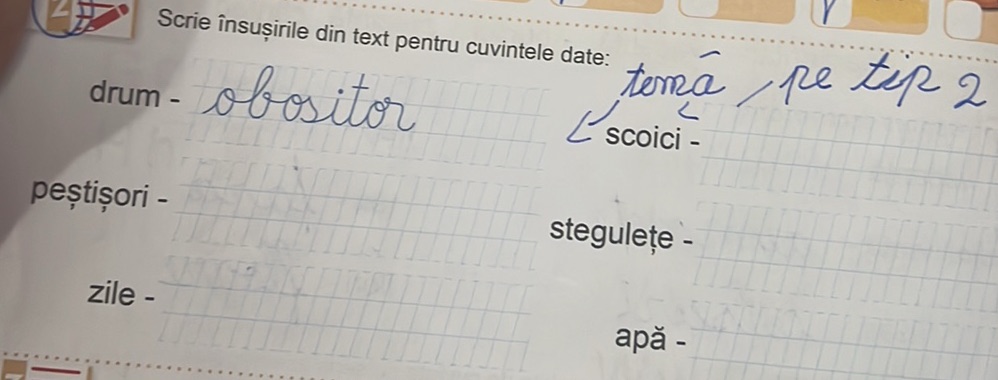 Scrie însușirile din text pentru cuvintele date:
temă, pe tip 2
drum - obositor
scoici -
peștișori -
stegulețe -
zile -
apă -